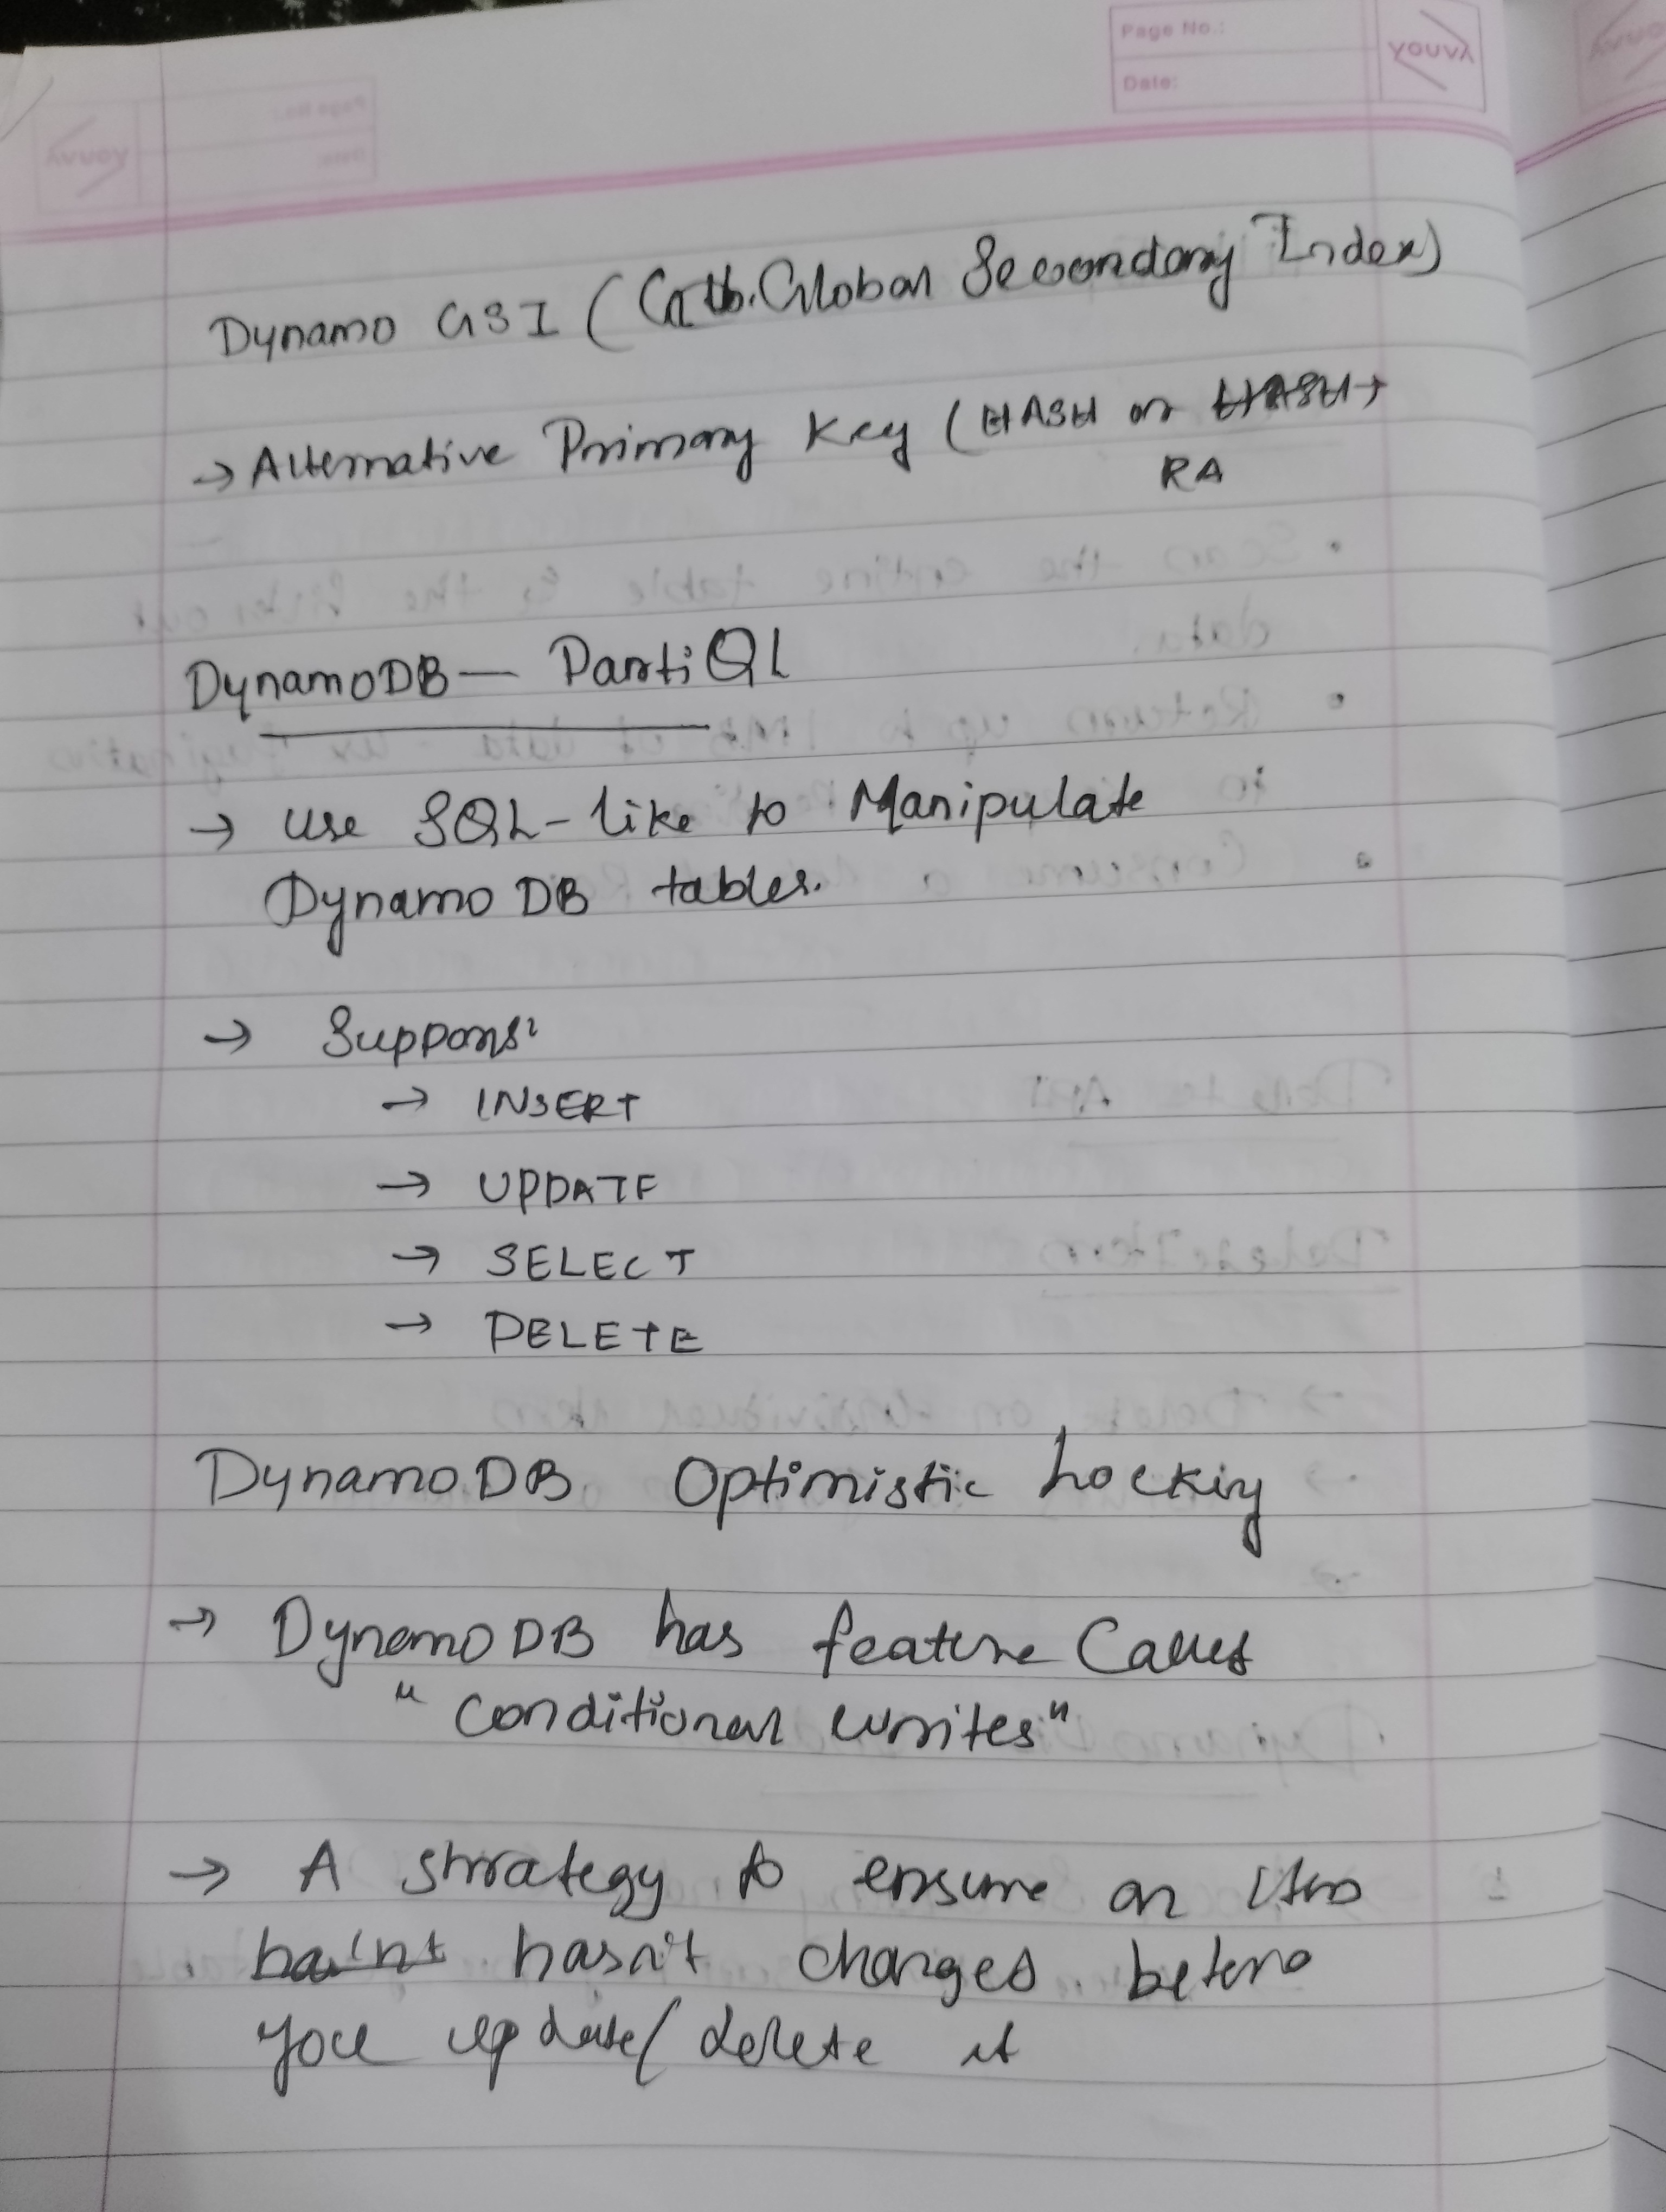 Page No.:
Date:
YOUVA
Dynamo GSI (Glb. Global Secondary Index)
→ Alternative Primary Key (HASH or HASH+
RA
DynamoDB — PartiQL
→ Use SQL-like to Manipulate
Dynamo DB tables.
→ Suppors:
→ INSERT
→ UPDATE
→ SELECT
→ DELETE
DynamoDB Optimistic Locking
→ DynamoDB has feature Calles
"Conditional writes"
→ A strategy to ensure an
hasn't changes before
you update/delete it